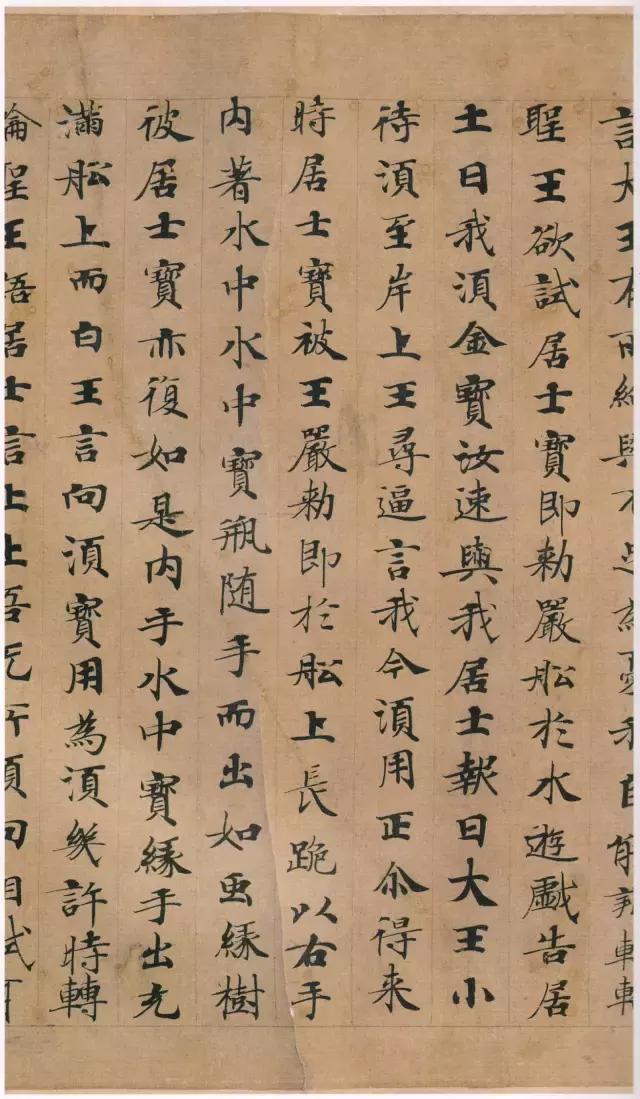 言大王有所給與不足為憂我自能
聖王欲試居士寶即勑嚴舩於水遊戲告居
士曰我湏金寶汝速與我居士報曰大王小
待湏至岸上王尋逼言我今湏用正尒得来
時居士寶被王嚴勑即於舩上長跪以右手
內著水中水中寶瓶随手而出如虫緣樹
彼居士寶亦復如是內手水中寶緣手出充
滿舩上而白王言向湏寶用為湏幾許時轉
輪聖王語居士言止止吾无所湏向相試耳